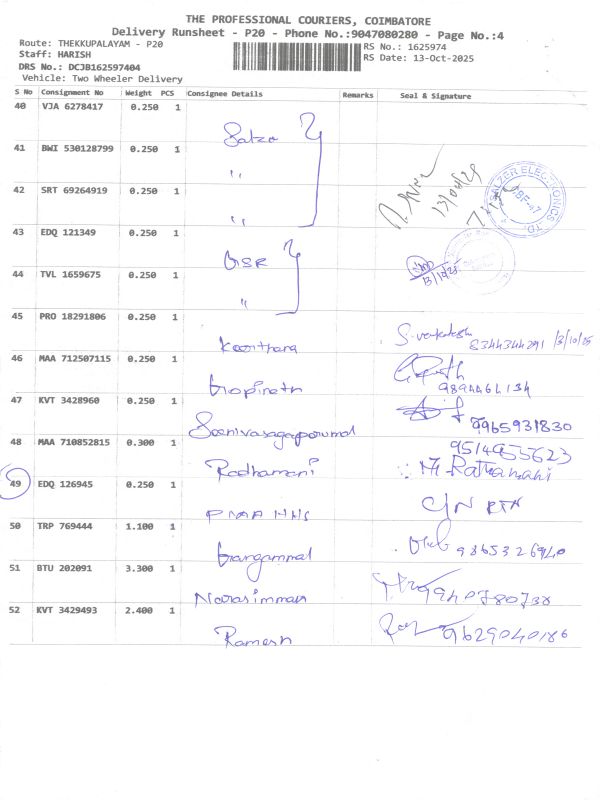 THE PROFESSIONAL COURIERS, COIMBATORE
Delivery Runsheet - P20 - Phone No.:9047080280 - Page No.:4
Route: THEKKUPALAYAM - P20
RS No.: 1625974
Staff: HARISH
RS Date: 13-Oct-2025
DRS No.: DCJB162597404
Vehicle: Two Wheeler Delivery
S No Consignment No Weight PCS Consignee Details Remarks Seal & Signature
40 VJA 6278417 0.250 1
Salzer
41 BWI 530128799 0.250 1
"
42 SRT 69264919 0.250 1
"
SALZER ELECTRONICS LTD.
43 EDQ 121349 0.250 1
GSR
44 TVL 1659675 0.250 1
"
13/10/25
45 PRO 18291806 0.250 1
Kavithara S. venkatesh 8344344291 13/10/25
46 MAA 712507115 0.250 1
Gopinath 9894464134
47 KVT 3428960 0.250 1
Seenivasagaperumal 9965931830
48 MAA 710852815 0.300 1
9514955623
Radhamani
49 EDQ 126945 0.250 1
PMA HHS C/N RTN
50 TRP 769444 1.100 1
Gangammal 9865326940
51 BTU 202091 3.300 1
Narasimman 9940780738
52 KVT 3429493 2.400 1
Ramesh 9629040186